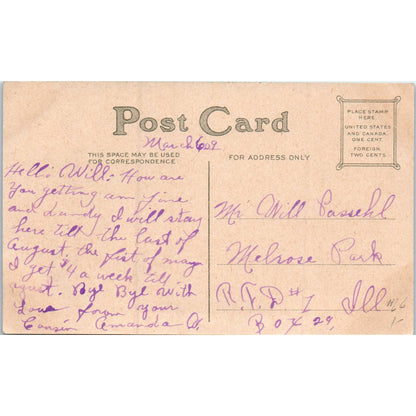 Post Card
March 6 09
THIS SPACE MAY BE USED
FOR CORRESPONDENCE
FOR ADDRESS ONLY
PLACE STAMP
HERE.
UNITED STATES
AND CANADA,
ONE CENT.
FOREIGN,
TWO CENTS.
Hello Will: How are
You getting am fine
and dandy I will stay
here till the last of
August. the fist of may
I get $4 a week till
August. Bye Bye With
Love from your
Cousin Amanda
Mr Will Passehl
Melrose Park
R.F.D #1 Ill
Box 29,